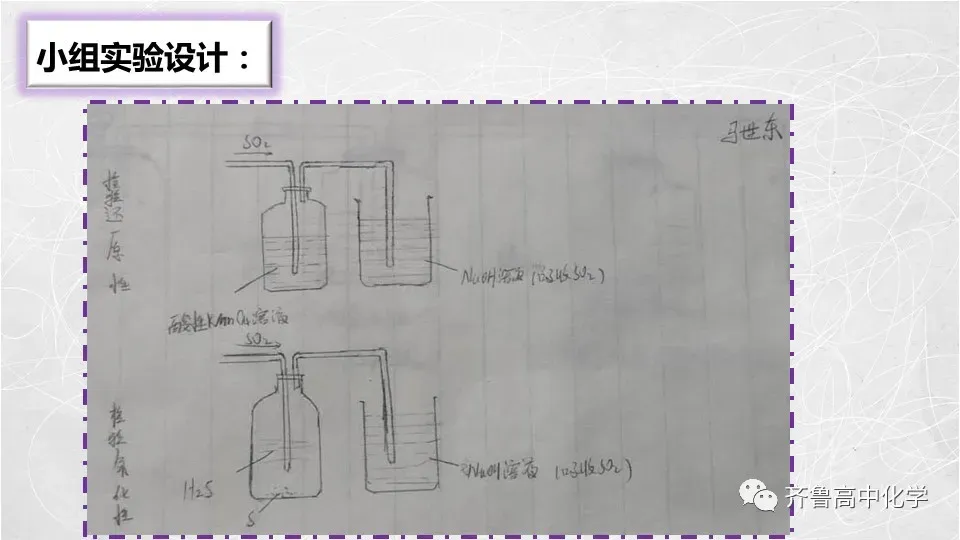 小组实验设计：
马世东
SO₂
检验还原性
NaOH溶液（吸收SO₂）
酸性KMnO₄溶液
SO₂
检验氧化性
NaOH溶液（吸收SO₂）
H₂S
S
齐鲁高中化学